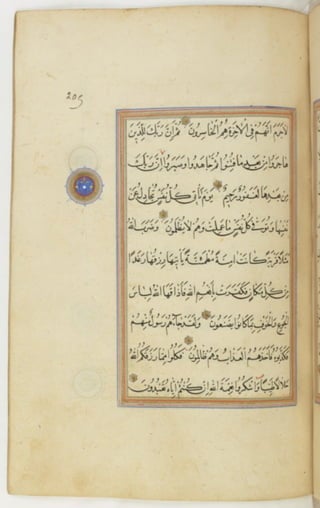 205
لاجرم انهم في الاخرة هم الخاسرون ثم ان ربك للذين
هاجروا من بعد ما فتنوا ثم جاهدوا وصبروا ان ربك
من بعدها لغفور رحيم يوم تأتي كل نفس تجادل عن
نفسها وتوفى كل نفس ما عملت وهم لا يظلمون وضرب الله
مثلا قرية كانت امنة مطمئنة يأتيها رزقها رغدا
من كل مكان فكفرت بانعم الله فاذاقها الله لباس
الجوع والخوف بما كانوا يصنعون ولقد جاءهم رسول منهم
فكذبوه فاخذهم العذاب وهم ظالمون فكلوا مما رزقكم الله
حلالا طيبا واشكروا نعمة الله ان كنتم اياه تعبدون